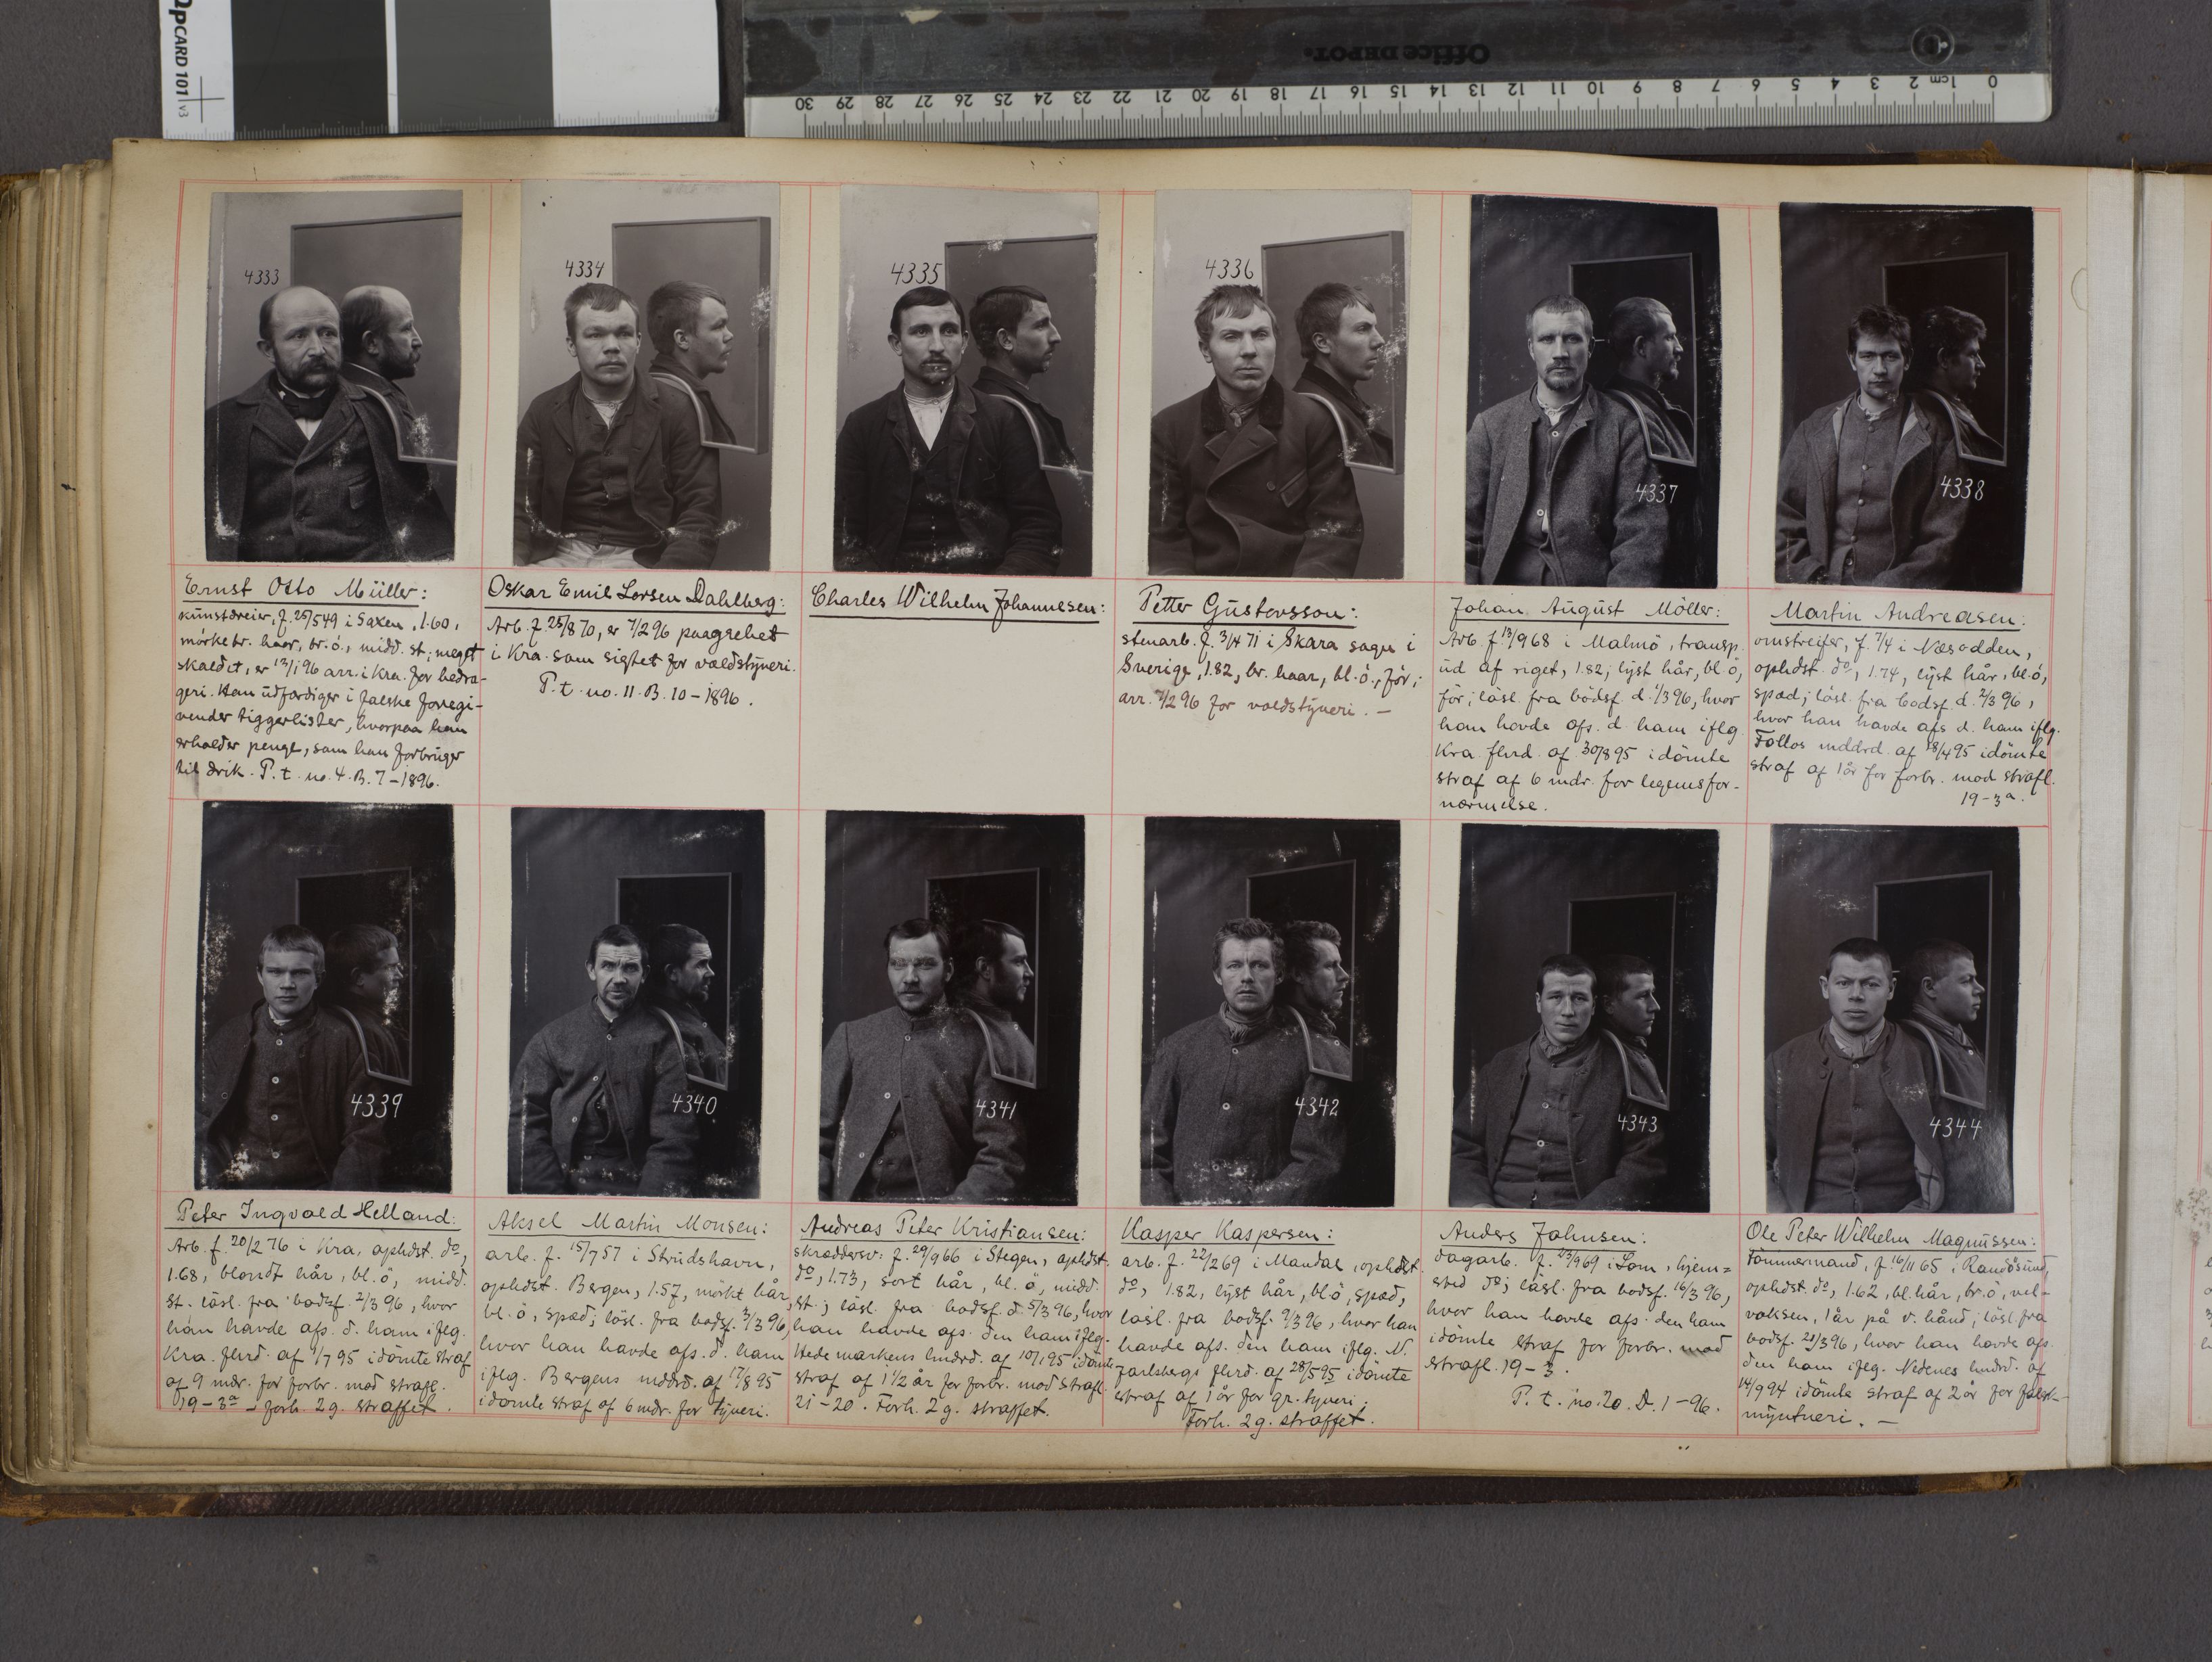 QPCARD 101 v3
Office DEPOT
30 29 28 27 26 25 24 23 22 21 20 19 18 17 16 15 14 13 12 11 10 9 8 7 6 5 4 3 2 1cm 0
4333
Ernst Otto Müller:
kunstdreier, f. 25/5 49 i Saxen, 1.60,
mörkebr. haar, br. ö., midd. st; meget
skaldet, er 12/1 96 arr. i Kra. for bedra-
geri. Han udfærdiger i falske foregi-
vender tiggerlister, hvorpaa han
erholder penge, som han forbruger
til drik. P. t. no. 4. B. 7 – 1896.
4334
Oskar Emil Larsen Dahlberg:
Arb. f. 25/8 70, er 7/2 96 paagrebet
i Kra. som sigtet for voldstyveri.
P. t. no. 11. B. 10 – 1896.
4335
Charles Wilhelm Johannesen:
4336
Petter Gustavsson:
stenarb. f. 3/4 71 i Skara sogn i
Sverige, 1.82, br. haar, bl. ö., för;
arr. 7/2 96 for voldstyveri. –
4337
Johan August Möller:
Arb. f 13/9 68 i Malmö, transp.
ud af riget, 1.82; lyst hår, bl. ö,
för; lösl. fra bodsf. d. 1/3 96, hvor
han havde afs. d. ham iflg.
Kra. flrd. af 30/8 95 idömte
straf af 6 mdr. for legemsfor-
nærmelse.
4338
Martin Andreasen:
omstreifer, f. 7/4 i Næsodden,
ophdst. do, 1.74, lyst hår, bl. ö,
spæd; lösl. fra bodsf d. 2/3 96,
hvor han havde afs d. ham iflg.
Follos mddrd. af 18/4 95 idömte
straf af 1 år for forbr. mod strafl.
19 – 3a.
4339
Peter Ingvald Helland:
Arb. f. 20/2 76 i Kra, ophdst. do,
1.68, blondt hår, bl. ö, midd.
st. lösl. fra bodsf. 2/3 96, hvor
han havde afs. d. ham iflg.
Kra. flrd. af 1795 idömte straf
af 9 mdr. for forbr. mod strafl.
19 – 3a – forh. 2 g. straffet.
4340
Aksel Martin Monsen:
arb. f. 15/7 57 i Strudshavn,
ophdst. Bergen, 1.57, mörkt hår,
bl. ö, spæd; lösl. fra bodsf. 3/3 96,
hvor han havde afs. d. ham
iflg. Bergens mddrd. af 17/8 95
idömte straf af 6 mdr. for tyveri.
4341
Andreas Peter Kristiansen:
skræddersv. f. 29/9 66 i Stegen, ophdst.
do, 1.73, sort hår, bl. ö, midd.
st.; lösl. fra bodsf. d. 5/3 96, hvor
han havde afs. den ham iflg.
Hedemarkens lmdrd. af 10/1 95 idömte
straf af 1 1/2 år for forbr. mod strafl.
21 – 20. Forh. 2 g. straffet.
4342
Kasper Kaspersen:
arb. f. 22/2 69 i Mandal, ophdst
do, 1.82, lyst hår, bl ö, spæd,
lösl. fra bodsf. 9/3 96, hvor han
havde afs. den ham iflg. N.
Jarlsbergs flrd. af 28/5 95 idömte
straf af 1 år for gr. tyveri.
Forh. 2 g. straffet.
4343
Anders Jahnsen:
dagarb. f. 23/9 69 i Lom, hjem=
sted do; lösl. fra bodsf. 16/3 96,
hvor han havde afs. den ham
idömte straf for forbr. mod
strafl. 19 – 3.
P. t. no. 20. D. 1 – 96.
4344
Ole Peter Wilhelm Magnussen:
tömmermand, f. 16/11 65 i Randösund,
ophdst. do, 1.62, bl. hår, br. ö, vel-
voksen, 1 ar på v. hånd; lösl. fra
bodsf. 21/3 96, hvor han havde afs.
den ham iflg. Nedenes lmdrd. af
14/9 94 idömte straf af 2 år for falsk-
myntneri. –